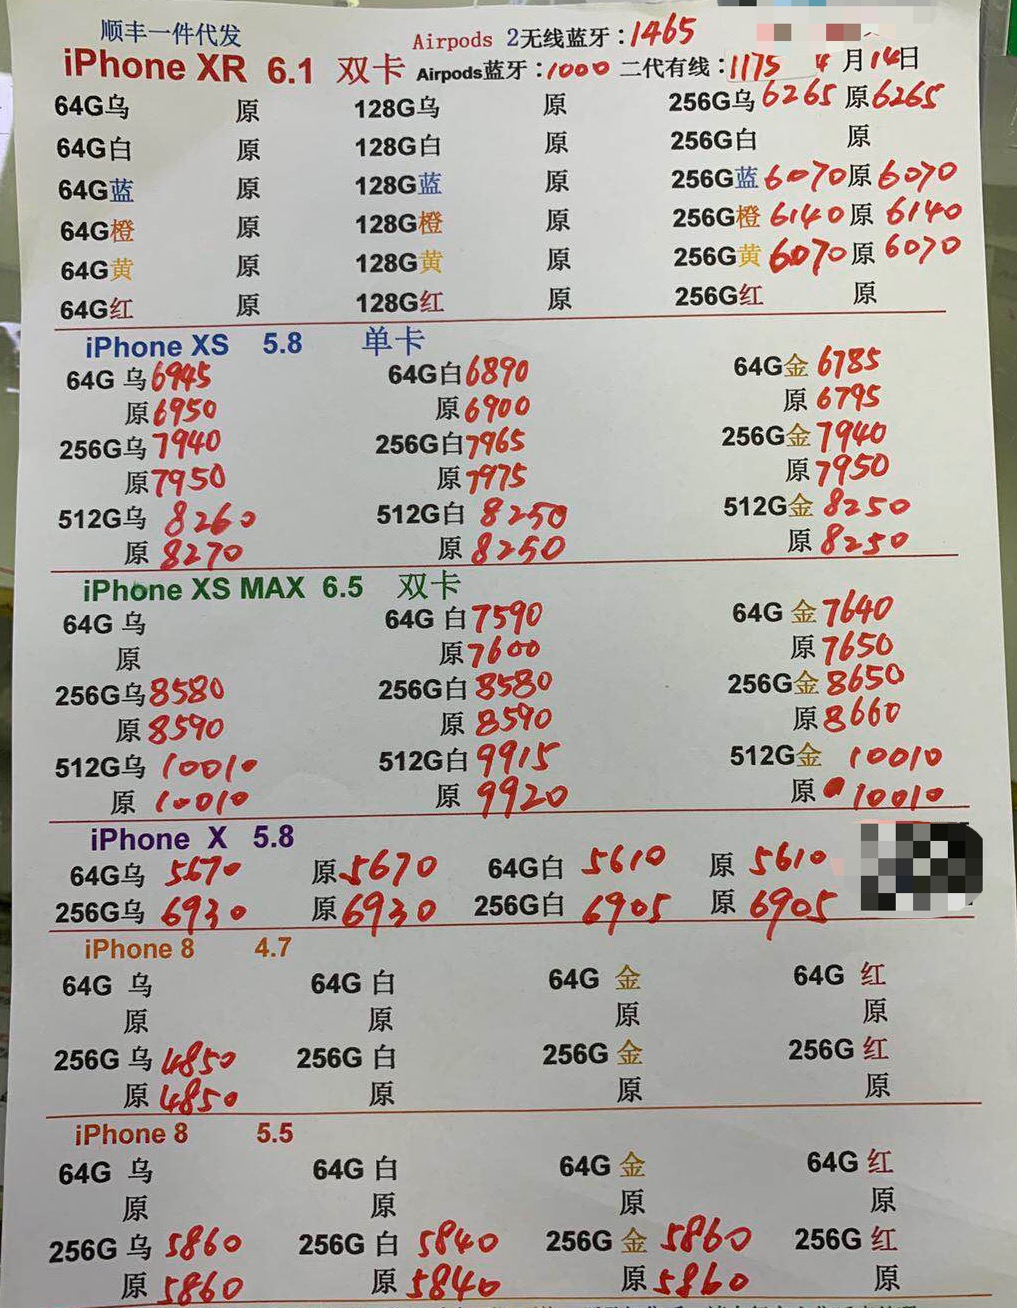 顺丰一件代发
Airpods 2无线蓝牙：1465
iPhone XR 6.1 双卡 Airpods蓝牙：1000 二代有线：1175 4月14日
64G乌 原 128G乌 原 256G乌 6265 原 6265
64G白 原 128G白 原 256G白 原
64G蓝 原 128G蓝 原 256G蓝 6070 原 6070
64G橙 原 128G橙 原 256G橙 6140 原 6140
64G黄 原 128G黄 原 256G黄 6070 原 6070
64G红 原 128G红 原 256G红 原
iPhone XS 5.8 单卡
64G 乌 6945 64G白 6890 64G金 6785
原 6950 原 6900 原 6795
256G乌 7940 256G白 7965 256G金 7940
原 7950 原 7975 原 7950
512G乌 8260 512G白 8250 512G金 8250
原 8270 原 8250 原 8250
iPhone XS MAX 6.5 双卡
64G 乌 64G 白 7590 64G 金 7640
原 原 7600 原 7650
256G乌 8580 256G白 8580 256G金 8650
原 8590 原 8590 原 8660
512G乌 10010 512G白 9915 512G金 10010
原 10010 原 9920 原 10010
iPhone X 5.8
64G乌 5670 原 5670 64G白 5610 原 5610
256G乌 6930 原 6930 256G白 6905 原 6905
iPhone 8 4.7
64G 乌 64G 白 64G 金 64G 红
原 原 原 原
256G 乌 4850 256G 白 256G 金 256G 红
原 4850 原 原 原
iPhone 8 5.5
64G 乌 64G 白 64G 金 64G 红
原 原 原 原
256G 乌 5860 256G 白 5840 256G 金 5860 256G 红
原 5860 原 5840 原 5860 原